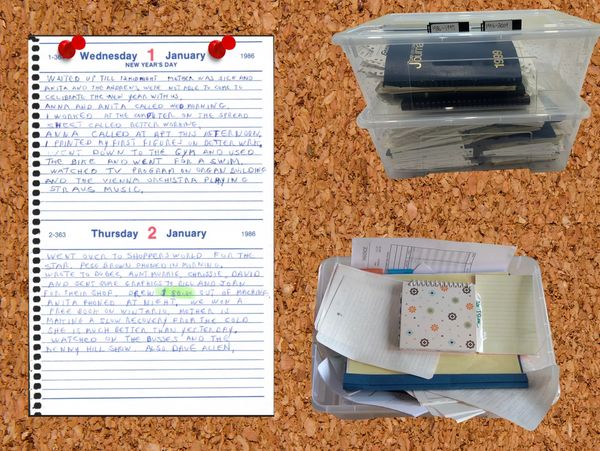 1-364 Wednesday 1 January 1986
NEW YEAR'S DAY
WAITED UP TILL 12 MIDNIGHT MOTHER WAS SICK AND
ANITA AND THE ANDREWS WERE NOT ABLE TO COME TO
CELIBRATE THE NEW YEAR WITH US.
ANNA AND ANITA CALLED MORNING.
I WORKED AT THE COMPUTER ON THE SPREAD
SHEET CALLED BETTER WORKING.
ANNA CALLED AT APT THIS AFTERNOON,
I PRINTED MY FIRST FIGURES ON BETTER WRK.
WENT DOWN TO THE GYM AND USED
THE BIKE AND WENT FOR A SWIM.
WATCHED TV PROGRAM ON ORGAN BUILDING
AND THE VIENNA ORCHISTRA PLAYING
STRAUS MUSIC.
2-363 Thursday 2 January 1986
WENT OVER TO SHOPPERS WORLD FOR THE
STAR, PEGG BROWN PHONED IN MORNING.
WROTE TO AUNT MURRIE, CHRISSIE, DAVID
AND SENT SOME GRAPHICS TO BILL AND JOHN
FOR THEIR SHOP. DREW OUT OF MACHINE
ANITA PHONED AT NIGHT, WE WON A
FREE BOOK ON WINTARIO, MOTHER IS
MAKING A SLOW RECOVERY FROM THE COLD
SHE IS MUCH BETTER THAN YESTERDAY.
WATCHED ON THE BUSSES AND THE
BENNY HILL SHOW. ALSO DAVE ALLEN.
Journal
1989
INVOICE